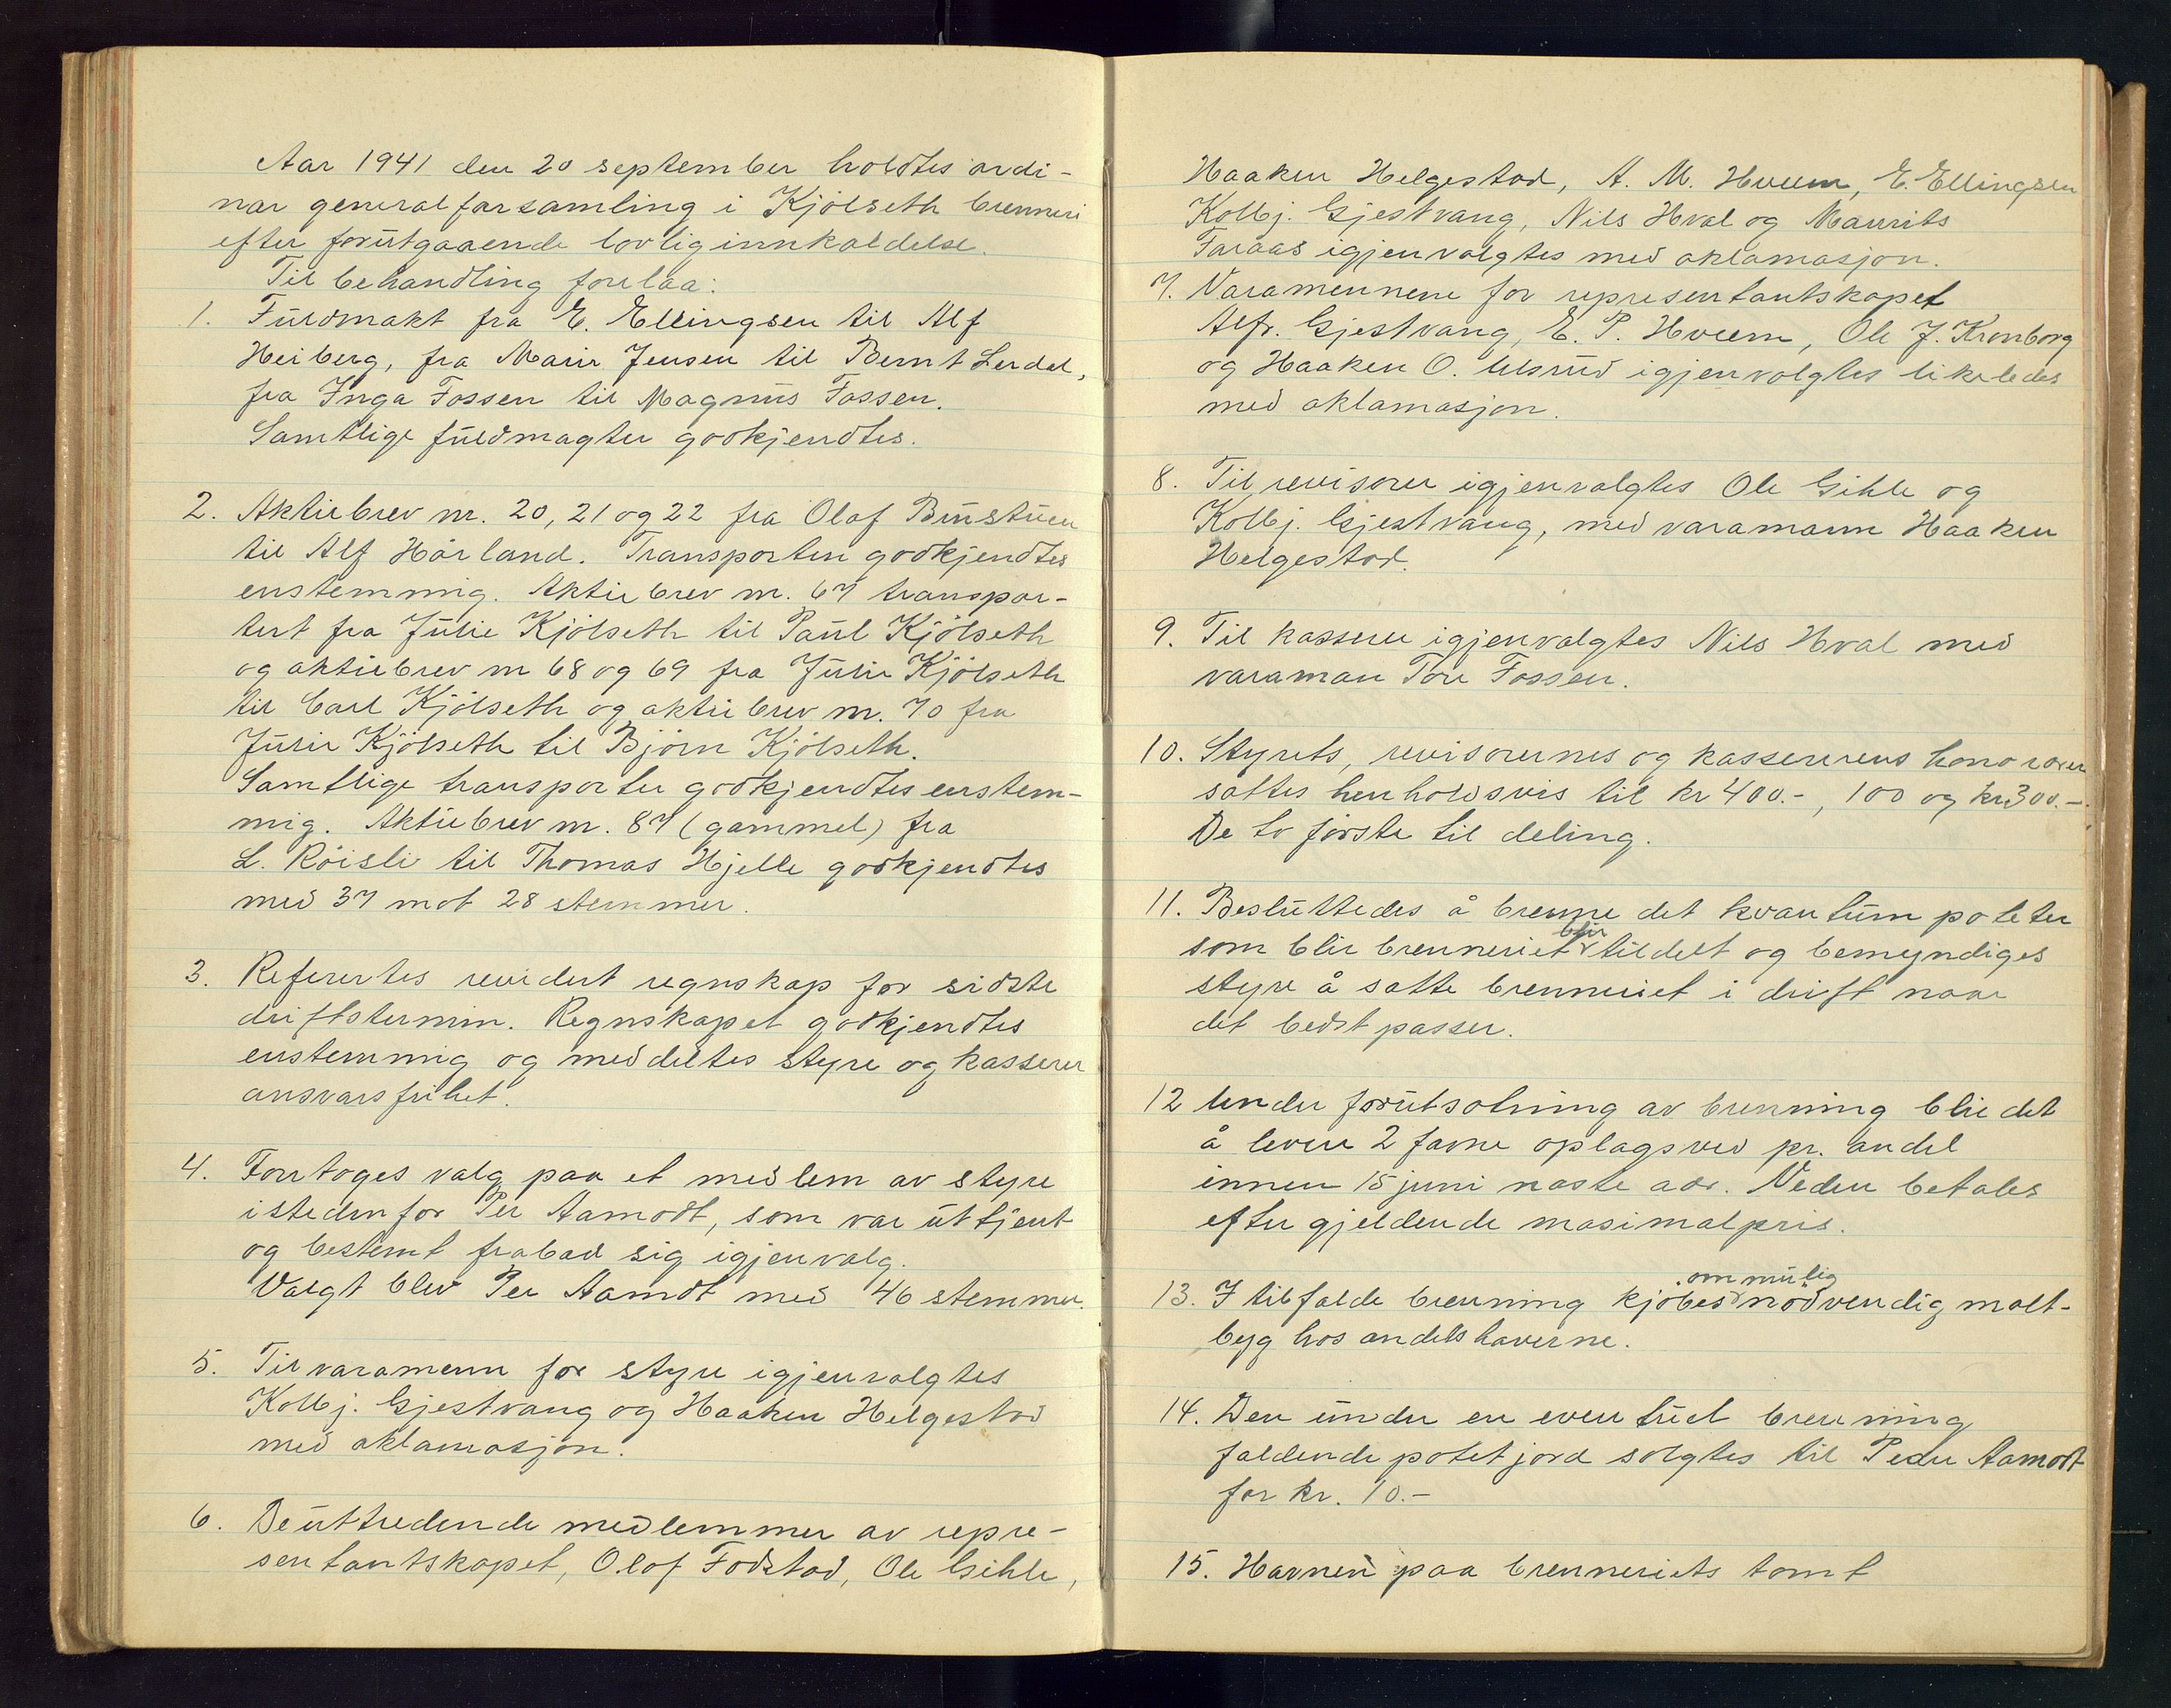 Aar 1941 den 20 september holdtes ordi-
nær generalforsamling i Kjölseth brenneri
efter forutgaaende lovlig innkaldelse.
Til behandling forelaa:
1. Fuldmakt fra E. Ellingsen til Alf
Heiberg, fra Marie Jensen til Bernt Lerdal,
fra Inga Fossen til Magnus Fossen.
Samtlige fuldmagter godkjendtes.
2. Aktiebrev nr. 20, 21 og 22 fra Olaf Bustuen
til Alf Hörland. Transporten godkjendtes
enstemmig. Aktiebrev nr. 67 transpor-
tert fra Julie Kjölseth til Paul Kjölseth
og aktiebrev nr 68 og 69 fra Julie Kjölseth
til Carl Kjölseth og aktiebrev nr. 70 fra
Julie Kjölseth til Björn Kjölseth.
Samtlige transporter godkjendtes enstem-
mig. Aktiebrev nr. 87 (gammel) fra
L. Röisli til Thomas Hjelle godkjendtes
med 37 mot 28 stemmer.
3. Refertes revidert regnskap for sidste
driftstermin. Regnskapet godkjendtes
enstemmig og meddeltes styre og kasserer
ansvarsfrihet.
4. Foretoges valg paa et medlem av styre
istedenfor Per Aamodt, som var uttjent
og bestemt frabad sig igjenvalg.
Valgt blev Per Aamdt med 46 stemmer.
5. Til varamenn for styre igjenvalgtes
Kolbj. Gjestvang og Haaken Helgestad
med aklamasjon.
6. De uttredende medlemmer av repre-
sentantskapet, Olof Fodstad, Ole Gihle,
Haaken Helgestad, A. M. Hveem, E. Ellingsen
Kolbj. Gjestvang, Nils Hval og Maurits
Faraas igjenvalgtes med aklamasjon.
7. Varamennene for representantskapet
Alfr. Gjestvang, E. P. Hveem, Ole J. Kronborg
og Haaken O. Ulsrud igjenvalgtes likeledes
med aklamasjon.
8. Til revisorer igjenvalgtes Ole Gihle og
Kolbj. Gjestvang, med varamann Haaken
Helgestad.
9. Til kasserer igjenvalgtes Nils Hval med
varaman Tore Fossen.
10. Styrets, revisorernes og kassererens honorarer
sattes henholdsvis til kr 400.-, 100 og kr 300.-.
De to förste til deling.
11. Besluttedes å brenne det kvantum poteter
som blir brenneriet blir tildelt og bemyndiges
styre å sætte brenneriet i drift naar
det bedst passer.
12 Under forutsætning av brenning blir det
å levere 2 favne oplagsved pr. andel
innen 15 juni næste aar. Veden betales
efter gjeldende masimalpris.
13. I tilfælde brenning kjöbes om mulig nödvendig malt-
byg hos andelshaverne.
14. Den under en eventuel brenning
faldende potetjord solgtes til Peder Aamodt
for kr. 10.-
15. Havnen paa brenneriets tomt